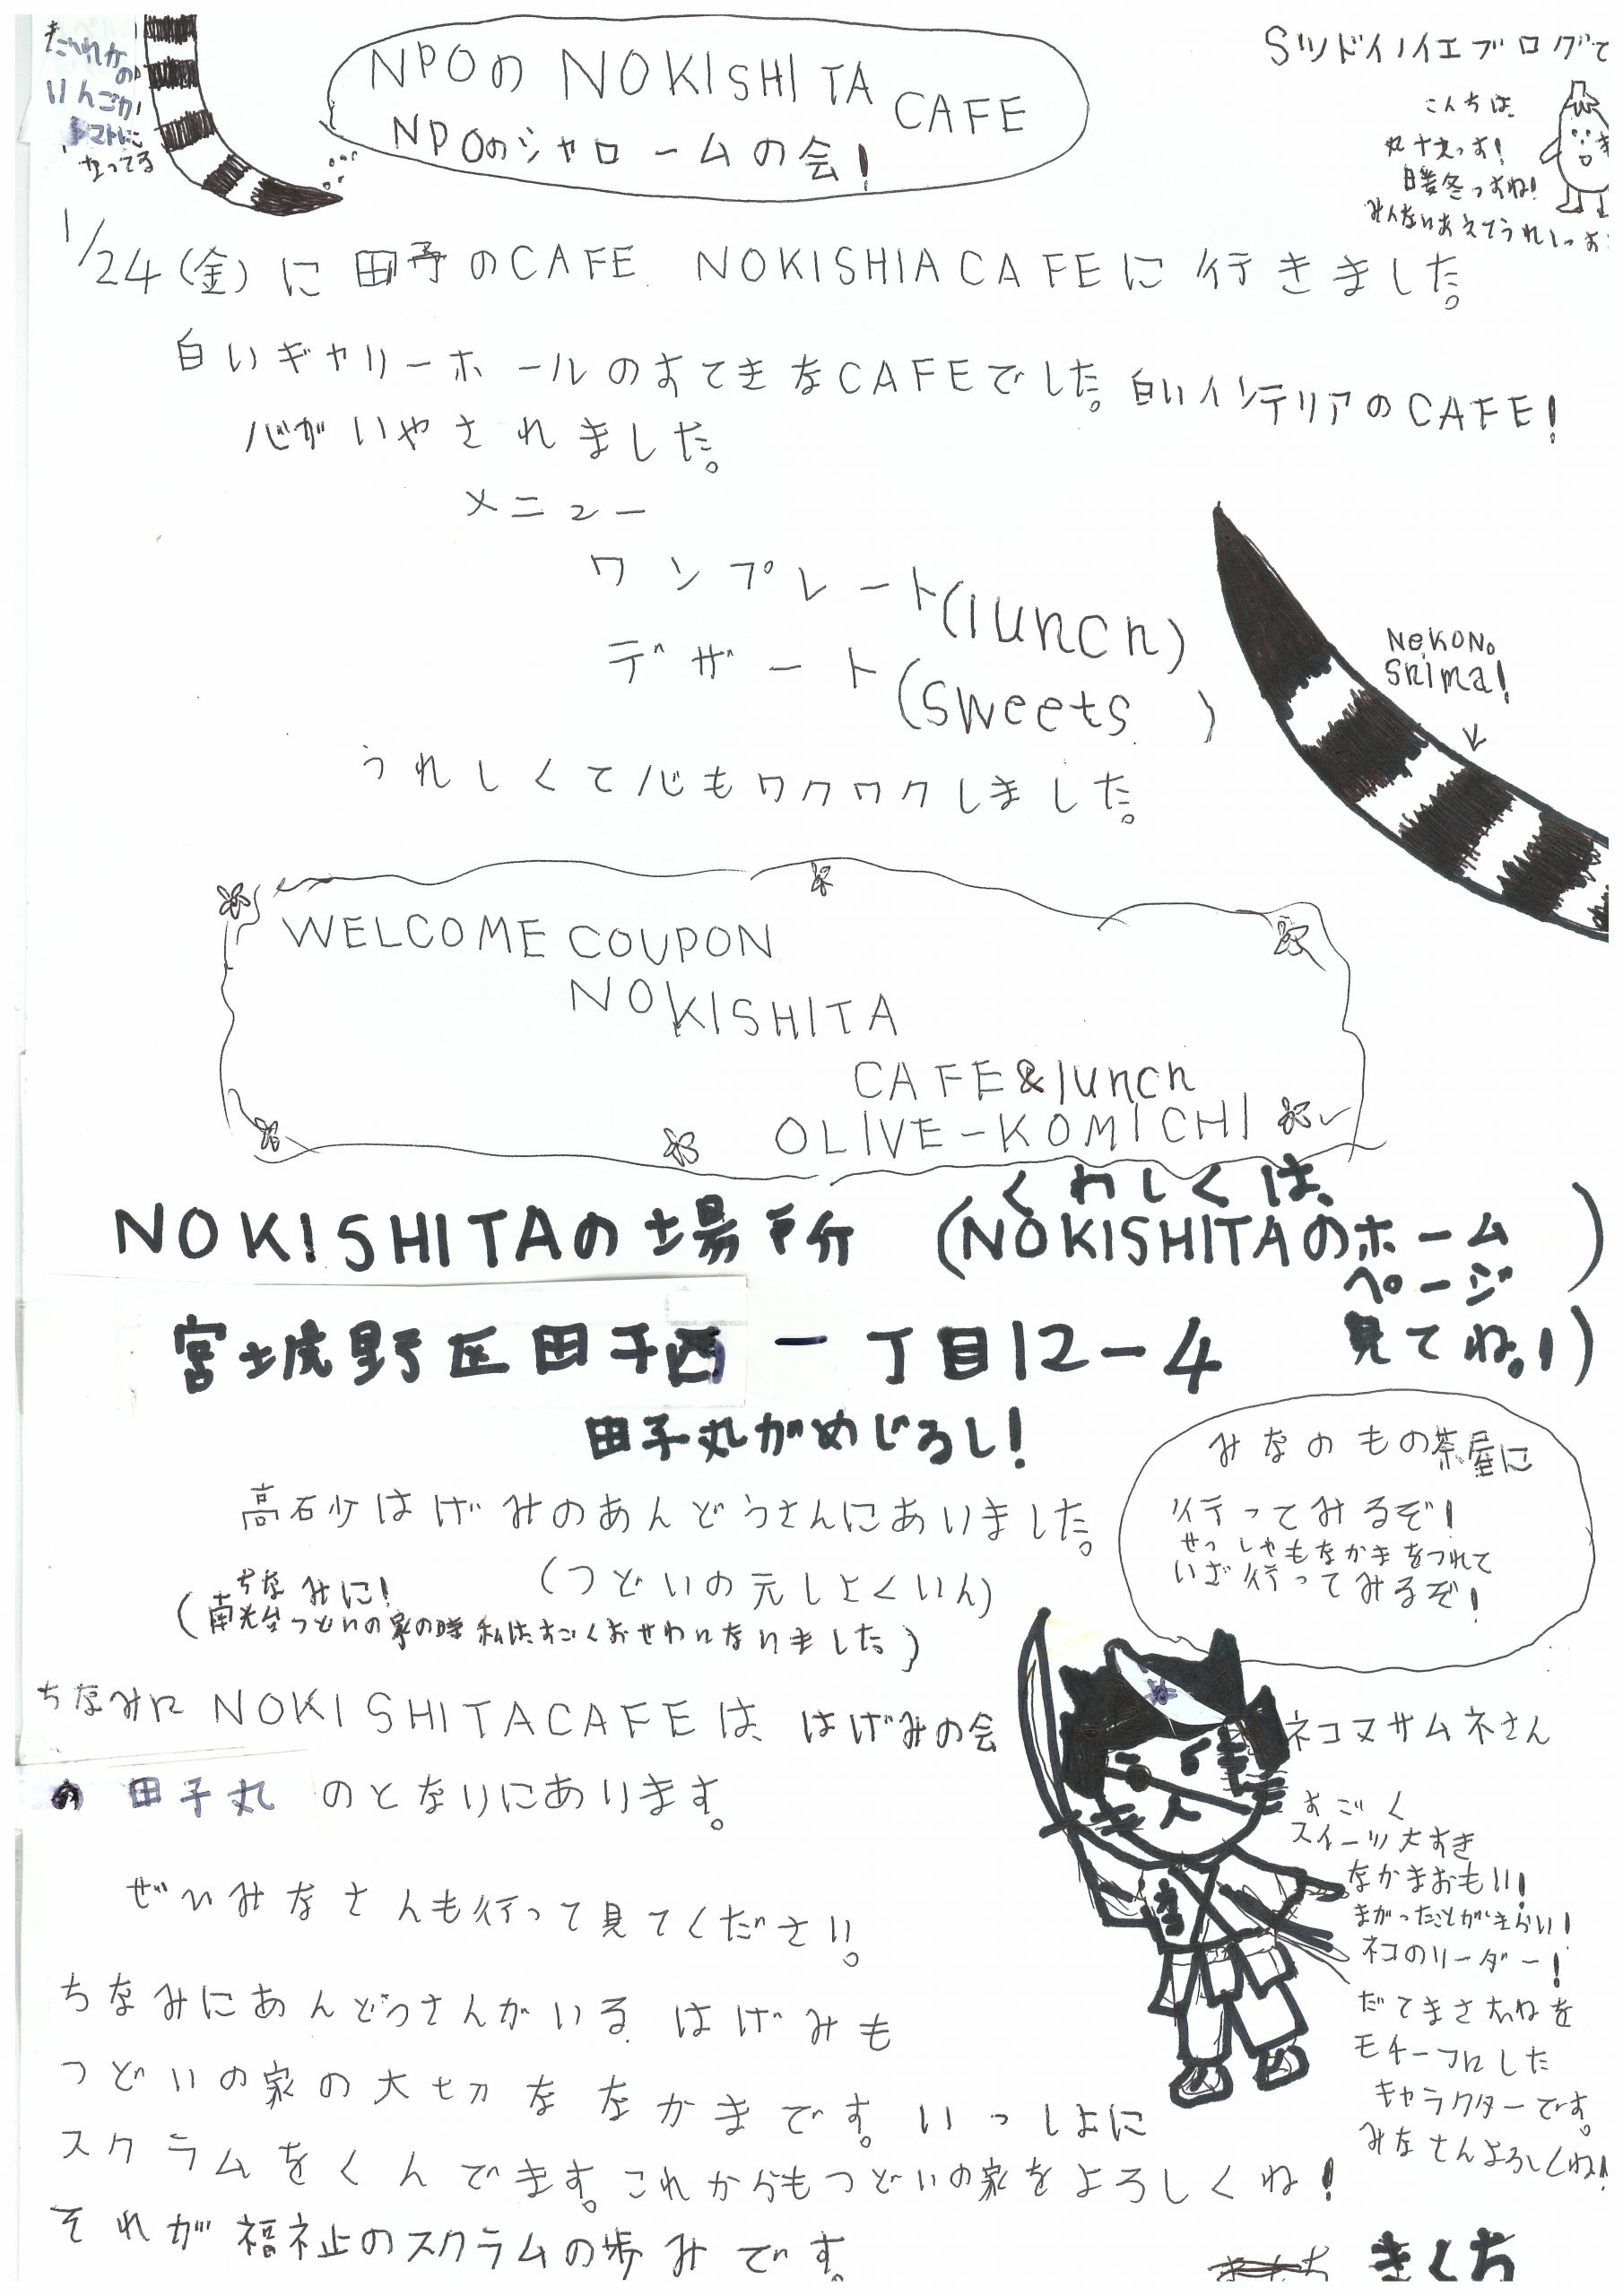 だれかの
りんごが
トマトに
なってる
NPOの NOKISHITA CAFE
NPOのシャロームの会!
Sツドイノイエブログで
こんちは
丸ナスっす!
暖冬っすね!
みんなにあえてうれしっす
1/24(金)に田子のCAFE NOKISHIACAFEに行きました。
白いギャリーホールのすてきなCAFEでした。白いインテリアのCAFE!
心がいやされました。
メニュー
ワンプレート(lunch)
デザート(sweets )
NeKoNo
Shima!
うれしくて心もワクワクしました。
WELCOME COUPON
NOKISHITA
CAFE&lunch
OLIVE-KOMICHI
NOKISHITAの場所 (くわしくは、
NOKISHITAのホーム
ページ
見てね。!)
宮城野区田子西一丁目12-4
田子丸がめじるし!
みなのもの茶屋に
行ってみるぞ!
せっしゃもなかまをつれて
いざ行ってみるぞ!
高砂はげみのあんどうさんにあいました。
(つどいの元しょくいん)
ちなみに!
(南光台つどいの家の時私はすごくおせわになりました)
ちなみにNOKISHITACAFEは、はげみの会
の 田子丸 のとなりにあります。
ネコマサムネさん
すごく
スイーツ大すき
なかまおもい!
まがったことがきらい!
ネコのリーダー!
だてまさむねを
モチーフにした
キャラクターです。
みなさんよろしくね!
ぜひみなさんも行って見てください。
ちなみにあんどうさんがいる はげみも
つどいの家の大切ななかまです。いっしょに
スクラムをくんでます。これからもつどいの家をよろしくね!
それが福祉のスクラムの歩みです。
きくち